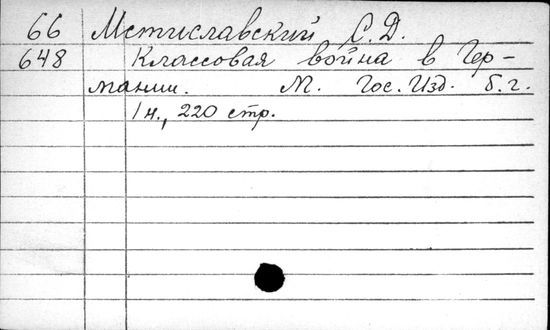 66 Мстиславский С.Д.
648 Классовая война в Гер-
мании. М. Гос. Изд. б.г.
1н., 220 стр.